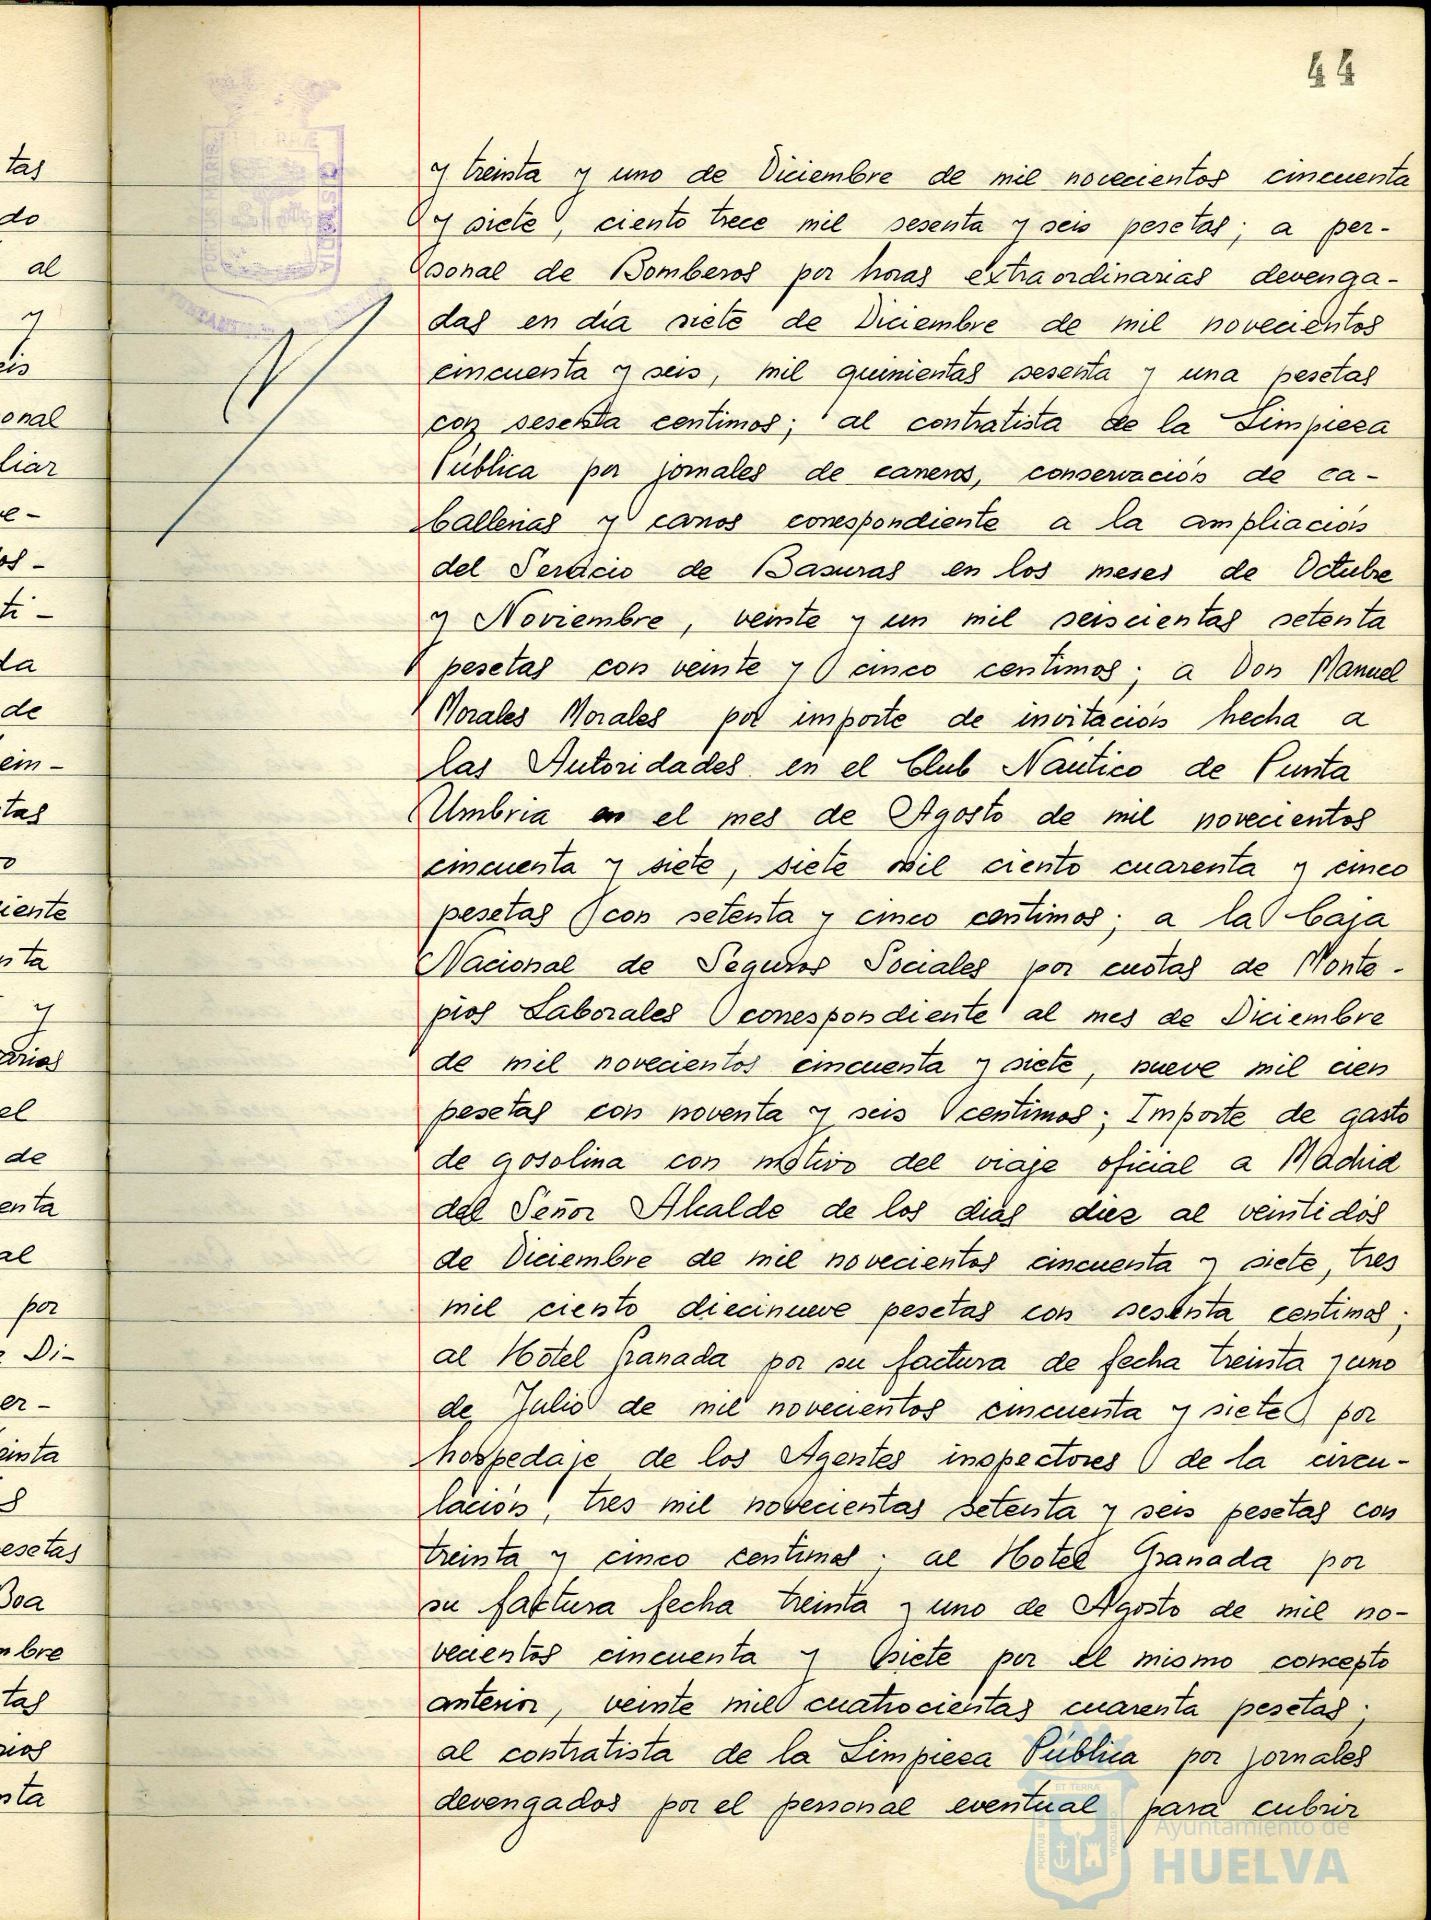 44
tas
do
al
y
eis
onal
liar
ve-
os-
ti-
da
de
ein-
tas
o
iente
nta
y
arios
el
de
enta
al
por
e Di-
er-
einta
s
esetas
Boa
mbre
tas
rios
nta
PORTUS MARIS
ET TERRÆ
CUSTODIA
y treinta y uno de Diciembre de mil novecientos cincuenta
y siete, ciento trece mil sesenta y seis pesetas; a per-
sonal de Bomberos por horas extraordinarias devenga-
das en día siete de Diciembre de mil novecientos
cincuenta y seis, mil quinientas sesenta y una pesetas
con sesenta centimos; al contratista de la Limpieza
Pública por jornales de carreros, conservación de ca-
ballerias y carros correspondiente a la ampliación
del Servicio de Basuras en los meses de Octubre
y Noviembre, veinte y un mil seiscientas setenta
pesetas con veinte y cinco centimos; a Don Manuel
Morales Morales por importe de invitación hecha a
las Autoridades en el Club Naútico de Punta
Umbria en el mes de Agosto de mil novecientos
cincuenta y siete, siete mil ciento cuarenta y cinco
pesetas con setenta y cinco centimos; a la Caja
Nacional de Seguros Sociales por cuotas de Monte-
pios Laborales correspondiente al mes de Diciembre
de mil novecientos cincuenta y siete, nueve mil cien
pesetas con noventa y seis centimos; Importe de gasto
de gosolina con motivo del viaje oficial a Madrid
del Señor Alcalde de los dias diez al veintidós
de Diciembre de mil novecientos cincuenta y siete, tres
mil ciento diecinueve pesetas con sesenta centimos;
al Hotel Granada por su factura de fecha treinta y uno
de Julio de mil novecientos cincuenta y siete por
hospedaje de los Agentes inspectores de la circu-
lación, tres mil novecientas setenta y seis pesetas con
treinta y cinco centimos; al Hotel Granada por
su factura fecha treinta y uno de Agosto de mil no-
vecientos cincuenta y siete por el mismo concepto
anterior, veinte mil cuatrocientas cuarenta pesetas;
al contratista de la Limpieza Pública por jornales
devengados por el personal eventual para cubrir
ET TERRÆ
PORTUS MARIS
CUSTODIA
Ayuntamiento de
HUELVA